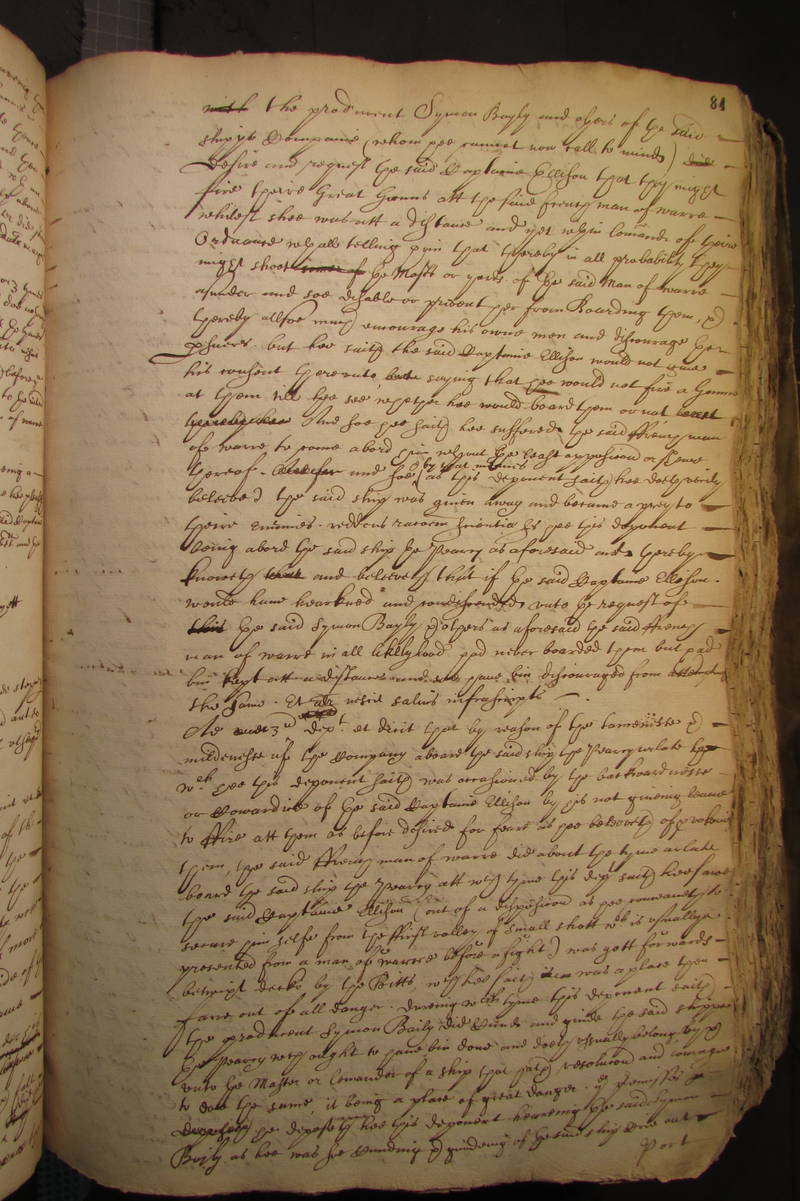 84
the predeposent Symon Bayly and others of the said
shipps Companie (whom hee cannot now call to minde)
desire and request the said Captaine Ellison that they might
fire theire Great Gunns att the said french man of warre
whilest shee was att a distance and yet within Comand of theire
Ordnance withall telling him that thereby in all probability they
might shoot the Masts or yards of the said Man of warre
asunder and soe disable or prevent her from Boarding them, and
thereby allsoe much encourage his owne men and discourage the
but hee saith the said Captaine Ellison would not give
his consent thereunto, saying that hee would not fire a Gunne
at them till hee see whether hee would board them or not
And soe hee saith hee suffered the said ffrench man
of warre to come abord him without the least opposicion or
thereof. and soe by that meanes (as this deponent saith) hee doeth verily
beleeve the said ship was given away and became a prey to
theire Enimies. reddens racionem scientia hee this deponent
being abord the said ship the Pearry as aforesaid and thereby
knoweth and beleeveth that if the said Captaine Ellison
would have hearkned and condescended unto the request of
the said Symon Bayly and others as aforesaid the said ffrench
man of warre in all liklyhood had never boarded them but had
bin kept att a distance and have bin discouraged from
the same. Et salvis infrascriptis
Ad 3um dept. et dicit that by reason of the tamenesse and
mildenesse of the Company aboard the said ship the Pearry arlate the
wch hee this deponent saith was occasioned by the backwardnesse
or Cowardice of the said Captaine Ellison by his not giveing leave
to ffire att them as before desired for feare as hee beleeveth of
them, the said ffrench man of warre did about the tyme arlate
board the said ship the Pearry att wch tyme this dept saith hee saw
the said Captaine Ellison (out of a disposicion as hee conceaveth to
secure him selfe from the ffirst volley of small shott wch is usually
presented from a man of warre before a fight) was gott forwards
betwixt decks by the Bitts, wch hee saith was a place then
farre out of all danger. Dureing wch tyme this deponent saith
the predeposent Symon Baily did Cund and guide the said shipp
the Pearry wch ought to have bin done and doeth usually belong
unto the Master or Comander of a ship that hath resolucion and courage
to doe the same, it being a place of great danger.
hee deposeth hee this deponent heareing the said Symon
Bayly as hee was soe Cundeing and guideing of the said ship Crie out
Port